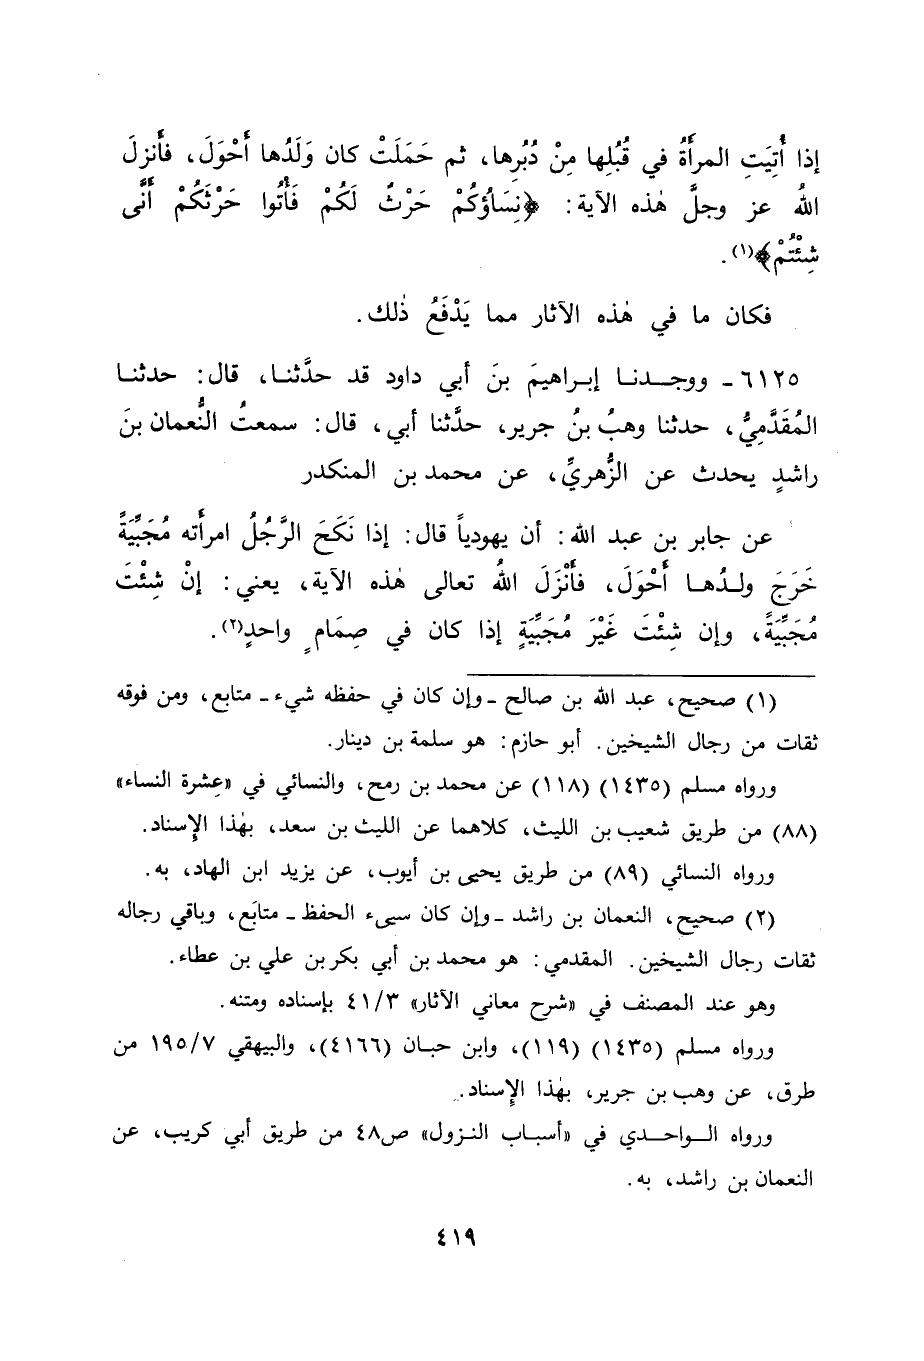 إذا أُتِيَتِ المرأةُ في قُبُلِها مِنْ دُبُرِها، ثم حَمَلَتْ كان وَلَدُها أَحْوَلَ، فأَنزلَ
اللهُ عز وجلَّ هٰذه الآية: ﴿نِسَاؤُكُمْ حَرْثٌ لَكُمْ فَأْتُوا حَرْثَكُمْ أَنَّى
شِئْتُمْ﴾(١).
فكان ما في هٰذه الآثار مما يَدْفَعُ ذٰلك.
٦١٢٥ - ووجـدنـا إبـراهيمَ بنَ أبي داود قد حدَّثنـا، قال: حدثنـا
المُقَدَّمِيُّ، حدثنا وهبُ بنُ جرير، حدَّثنا أبي، قال: سمعتُ النُّعمان بنَ
راشدٍ يحدث عن الزُّهريِّ، عن محمد بن المنكدر
عن جابر بن عبد الله: أن يهودياً قال: إذا نَكَحَ الرَّجُلُ امرأَته مُجَبِّيَةً
خَرَجَ ولـدُهـا أَحْوَلَ، فأَنْزَلَ اللهُ تعالى هٰذه الآية، يعني: إنْ شِئْتَ
مُجَبِّيَةً، وإن شِئْتَ غَيْرَ مُجَبِّيَةٍ إذا كان في صِمَامٍ واحدٍ(٢).
(١) صحيح، عبد الله بن صالح - وإن كان في حفظه شيء - متابع، ومن فوقه
ثقات من رجال الشيخين. أبو حازم: هو سلمة بن دينار.
ورواه مسلم (١٤٣٥) (١١٨) عن محمد بن رمح، والنسائي في «عِشرة النساء»
(٨٨) من طريق شعيب بن الليث، كلاهما عن الليث بن سعد، بهٰذا الإِسناد.
ورواه النسائي (٨٩) من طريق يحيى بن أيوب، عن يزيد ابن الهاد، به.
(٢) صحيح، النعمان بن راشد - وإن كان سيىء الحفظ - متابَع، وباقي رجاله
ثقات رجال الشيخين. المقدمي: هو محمد بن أبي بكر بن علي بن عطاء.
وهو عند المصنف في «شرح معاني الآثار» ٤١/٣ بإسناده ومتنه.
ورواه مسلم (١٤٣٥) (١١٩)، وابن حبـان (٤١٦٦)، والبيهقي ١٩٥/٧ من
طرق، عن وهب بن جرير، بهٰذا الإِسناد.
ورواه الـواحـدي في «أسبـاب النـزول» ص٤٨ من طريق أبي كريب، عن
النعمان بن راشد، به.
٤١٩